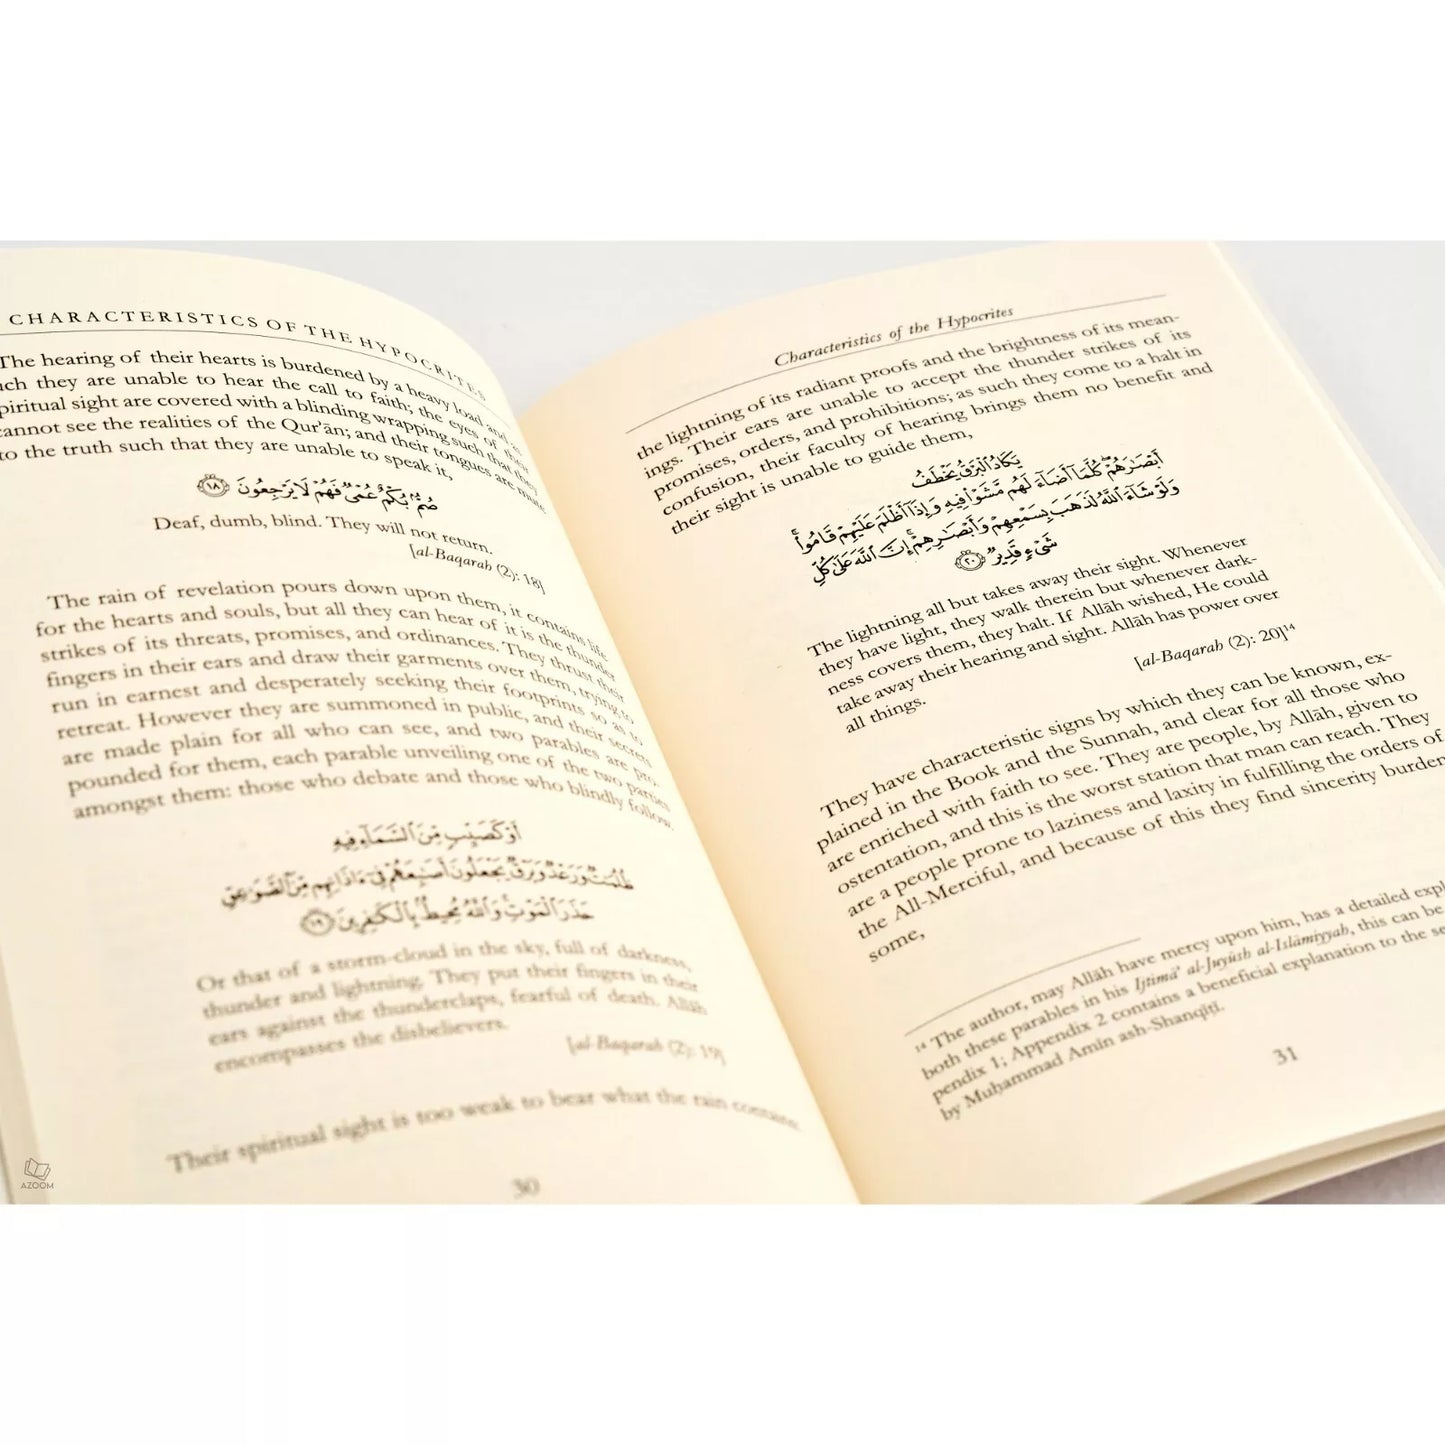 CHARACTERISTICS OF THE HYPOCRITES
The hearing of their hearts is burdened by a heavy load and as
uch they are unable to hear the call to faith; the eyes of their
piritual sight are covered with a blinding wrapping such that they
cannot see the realities of the Qur'ān; and their tongues are mute
to the truth such that they are unable to speak it,
صُمٌّ بُكْمٌ عُمْىٌ فَهُمْ لَا يَرْجِعُونَ ١٨
Deaf, dumb, blind. They will not return.
[al-Baqarah (2): 18]
The rain of revelation pours down upon them, it contains life
for the hearts and souls, but all they can hear of it is the thunder
strikes of its threats, promises, and ordinances. They thrust their
fingers in their ears and draw their garments over them, trying to
run in earnest and desperately seeking their footprints so as to
retreat. However they are summoned in public, and their secrets
are made plain for all who can see, and two parables are pro-
pounded for them, each parable unveiling one of the two parties
amongst them: those who debate and those who blindly follow.
أَوْ كَصَيِّبٍ مِّنَ ٱلسَّمَآءِ فِيهِ
ظُلُمَٰتٌ وَرَعْدٌ وَبَرْقٌ يَجْعَلُونَ أَصَٰبِعَهُمْ فِىٓ ءَاذَانِهِم مِّنَ ٱلصَّوَٰعِقِ
حَذَرَ ٱلْمَوْتِ وَٱللَّهُ مُحِيطٌۢ بِٱلْكَٰفِرِينَ ١٩
Or that of a storm-cloud in the sky, full of darkness,
thunder and lightning. They put their fingers in their
ears against the thunderclaps, fearful of death. Allāh
encompasses the disbelievers.
[al-Baqarah (2): 19]
Their spiritual sight is too weak to bear what the rain contains:
30
AZOOM
Characteristics of the Hypocrites
the lightning of its radiant proofs and the brightness of its mean-
ings. Their ears are unable to accept the thunder strikes of its
promises, orders, and prohibitions; as such they come to a halt in
confusion, their faculty of hearing brings them no benefit and
their sight is unable to guide them,
يَكَادُ ٱلْبَرْقُ يَخْطَفُ
أَبْصَٰرَهُمْ كُلَّمَآ أَضَآءَ لَهُم مَّشَوْا۟ فِيهِ وَإِذَآ أَظْلَمَ عَلَيْهِمْ قَامُوا۟
وَلَوْ شَآءَ ٱللَّهُ لَذَهَبَ بِسَمْعِهِمْ وَأَبْصَٰرِهِمْ إِنَّ ٱللَّهَ عَلَىٰ كُلِّ
شَىْءٍ قَدِيرٌ ٢٠
The lightning all but takes away their sight. Whenever
they have light, they walk therein but whenever dark-
ness covers them, they halt. If Allāh wished, He could
take away their hearing and sight. Allāh has power over
all things.
[al-Baqarah (2): 20]¹⁴
They have characteristic signs by which they can be known, ex-
plained in the Book and the Sunnah, and clear for all those who
are enriched with faith to see. They are people, by Allāh, given to
ostentation, and this is the worst station that man can reach. They
are a people prone to laziness and laxity in fulfilling the orders of
the All-Merciful, and because of this they find sincerity burden
some,
¹⁴ The author, may Allāh have mercy upon him, has a detailed expl
both these parables in his Ijtimā' al-Juyūsh al-Islāmiyyah, this can be
pendix 1; Appendix 2 contains a beneficial explanation to the se
by Muḥammad Amīn ash-Shanqīṭī.
31